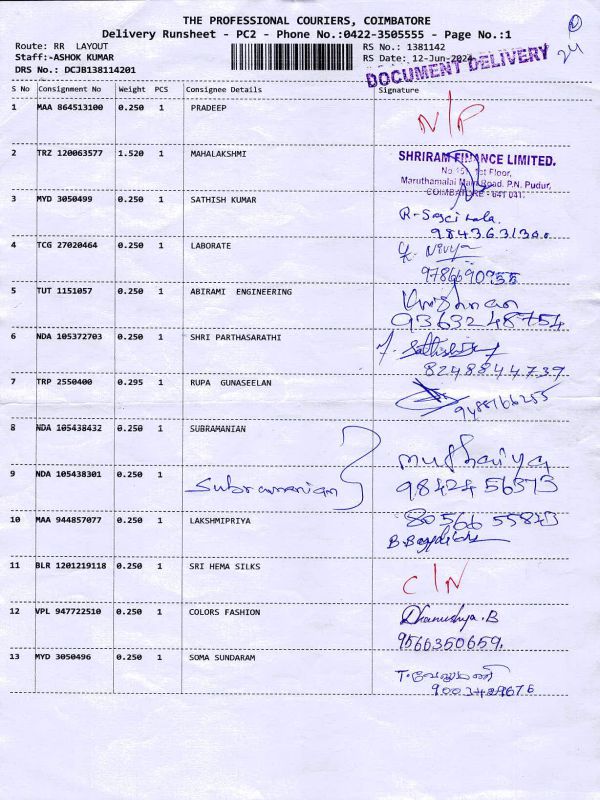 THE PROFESSIONAL COURIERS, COIMBATORE
Delivery Runsheet - PC2 - Phone No.:0422-3505555 - Page No.:1
Route: RR LAYOUT RS No.: 1381142
Staff:-ASHOK KUMAR RS Date: 12-Jun-2024
DRS No.: DCJB138114201
DOCUMENT DELIVERY
24
S No Consignment No Weight PCS Consignee Details Signature
1 MAA 864513100 0.250 1 PRADEEP N/P
2 TRZ 120063577 1.520 1 MAHALAKSHMI
SHRIRAM FINANCE LIMITED.
1st Floor,
Maruthamalai Main Road, P.N. Pudur,
COIMBATORE - 641 041.
3 MYD 3050499 0.250 1 SATHISH KUMAR
9843631300
4 TCG 27020464 0.250 1 LABORATE
Nivya
9786690955
5 TUT 1151057 0.250 1 ABIRAMI ENGINEERING
93632 48754
6 NDA 105372703 0.250 1 SHRI PARTHASARATHI
8248844739
7 TRP 2550400 0.295 1 RUPA GUNASEELAN
9488166255
8 NDA 105438432 0.250 1 SUBRAMANIAN
9 NDA 105438301 0.250 1 Subramanian
98424 56373
10 MAA 944857077 0.250 1 LAKSHMIPRIYA
80566 55843
11 BLR 1201219118 0.250 1 SRI HEMA SILKS C/N
12 VPL 947722510 0.250 1 COLORS FASHION
Dhanushya.B
9566350659.
13 MYD 3050496 0.250 1 SOMA SUNDARAM